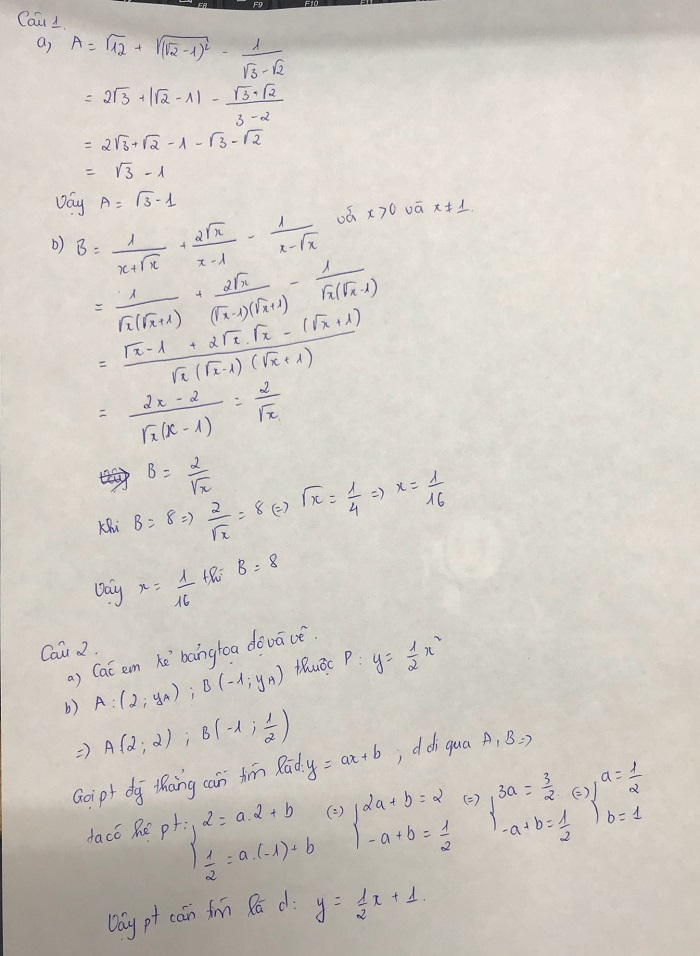 F8 F9 F10 F11
Câu 1.
a, A = √12 + √(√2-1)² - 1/(√3-√2)
= 2√3 + |√2 - 1| - (√3+√2)/(3-2)
= 2√3 + √2 - 1 - √3 - √2
= √3 - 1
Vậy A = √3 - 1
b) B = 1/(x+√x) + 2√x/(x-1) - 1/(x-√x) và x > 0 và x ≠ 1.
= 1/(√x(√x+1)) + 2√x/((√x-1)(√x+1)) - 1/(√x(√x-1))
= (√x-1 + 2√x.√x - (√x+1))/(√x(√x-1)(√x+1))
= (2x-2)/(√x(x-1)) = 2/√x
B = 2/√x
Khi B = 8 => 2/√x = 8 (=) √x = 1/4 => x = 1/16
Vậy x = 1/16 thì B = 8
Câu 2.
a) Các em kẻ bảng tọa độ và vẽ.
b) A:(2; yA) ; B(-1; yA) thuộc P: y = 1/2 x²
=> A(2; 2) ; B(-1; 1/2)
Gọi pt đg thẳng cần tìm là d: y = ax + b ; d đi qua A, B =>
ta có hệ pt: { 2 = a.2 + b ; 1/2 = a.(-1) + b (=) { 2a + b = 2 ; -a + b = 1/2 (=) { 3a = 3/2 ; -a + b = 1/2 (=) { a = 1/2 ; b = 1
Vậy pt cần tìm là d: y = 1/2 x + 1.